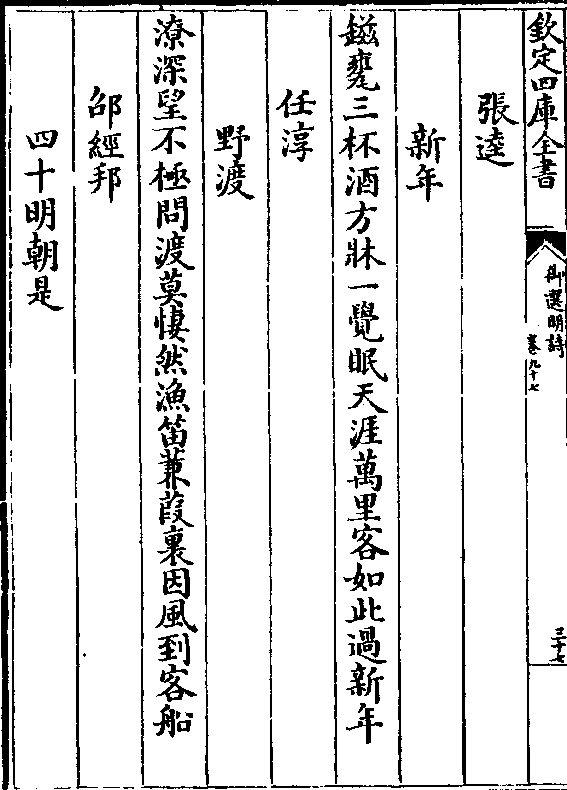 欽定四庫全書
御選明詩
卷九十七
三十七
張逵
新年
鎡甕三杯酒方牀一覺眠天涯萬里客如此過新年
任淳
野渡
潦深望不極問渡莫悽然漁笛蒹葭裏因風到客船
邵經邦
四十明朝是